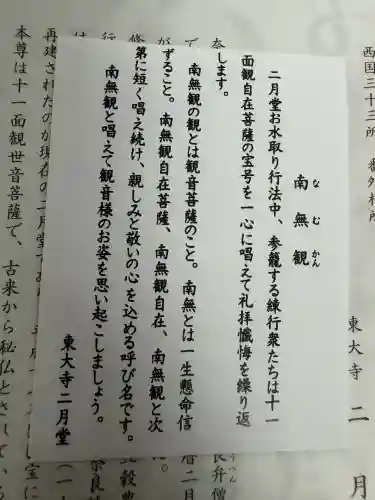 南無観
なむかん
二月堂お水取り行法中、参籠する練行衆たちは十一
面観自在菩薩の宝号を一心に唱えて礼拝懺悔を繰り返
します。
南無観の観とは観音菩薩のこと。南無とは一生懸命信
ずること。南無観自在菩薩、南無観自在、南無観と次
第に短く唱え続け、親しみと敬いの心を込める呼び名です。
南無観と唱えて観音様のお姿を思い起こしましょう。
東大寺二月堂
西国三十三所 番外札所
東大寺 二月
再建されたのが現在の二月堂であ
本尊は十一面観世音菩薩で、古来から秘仏とされている